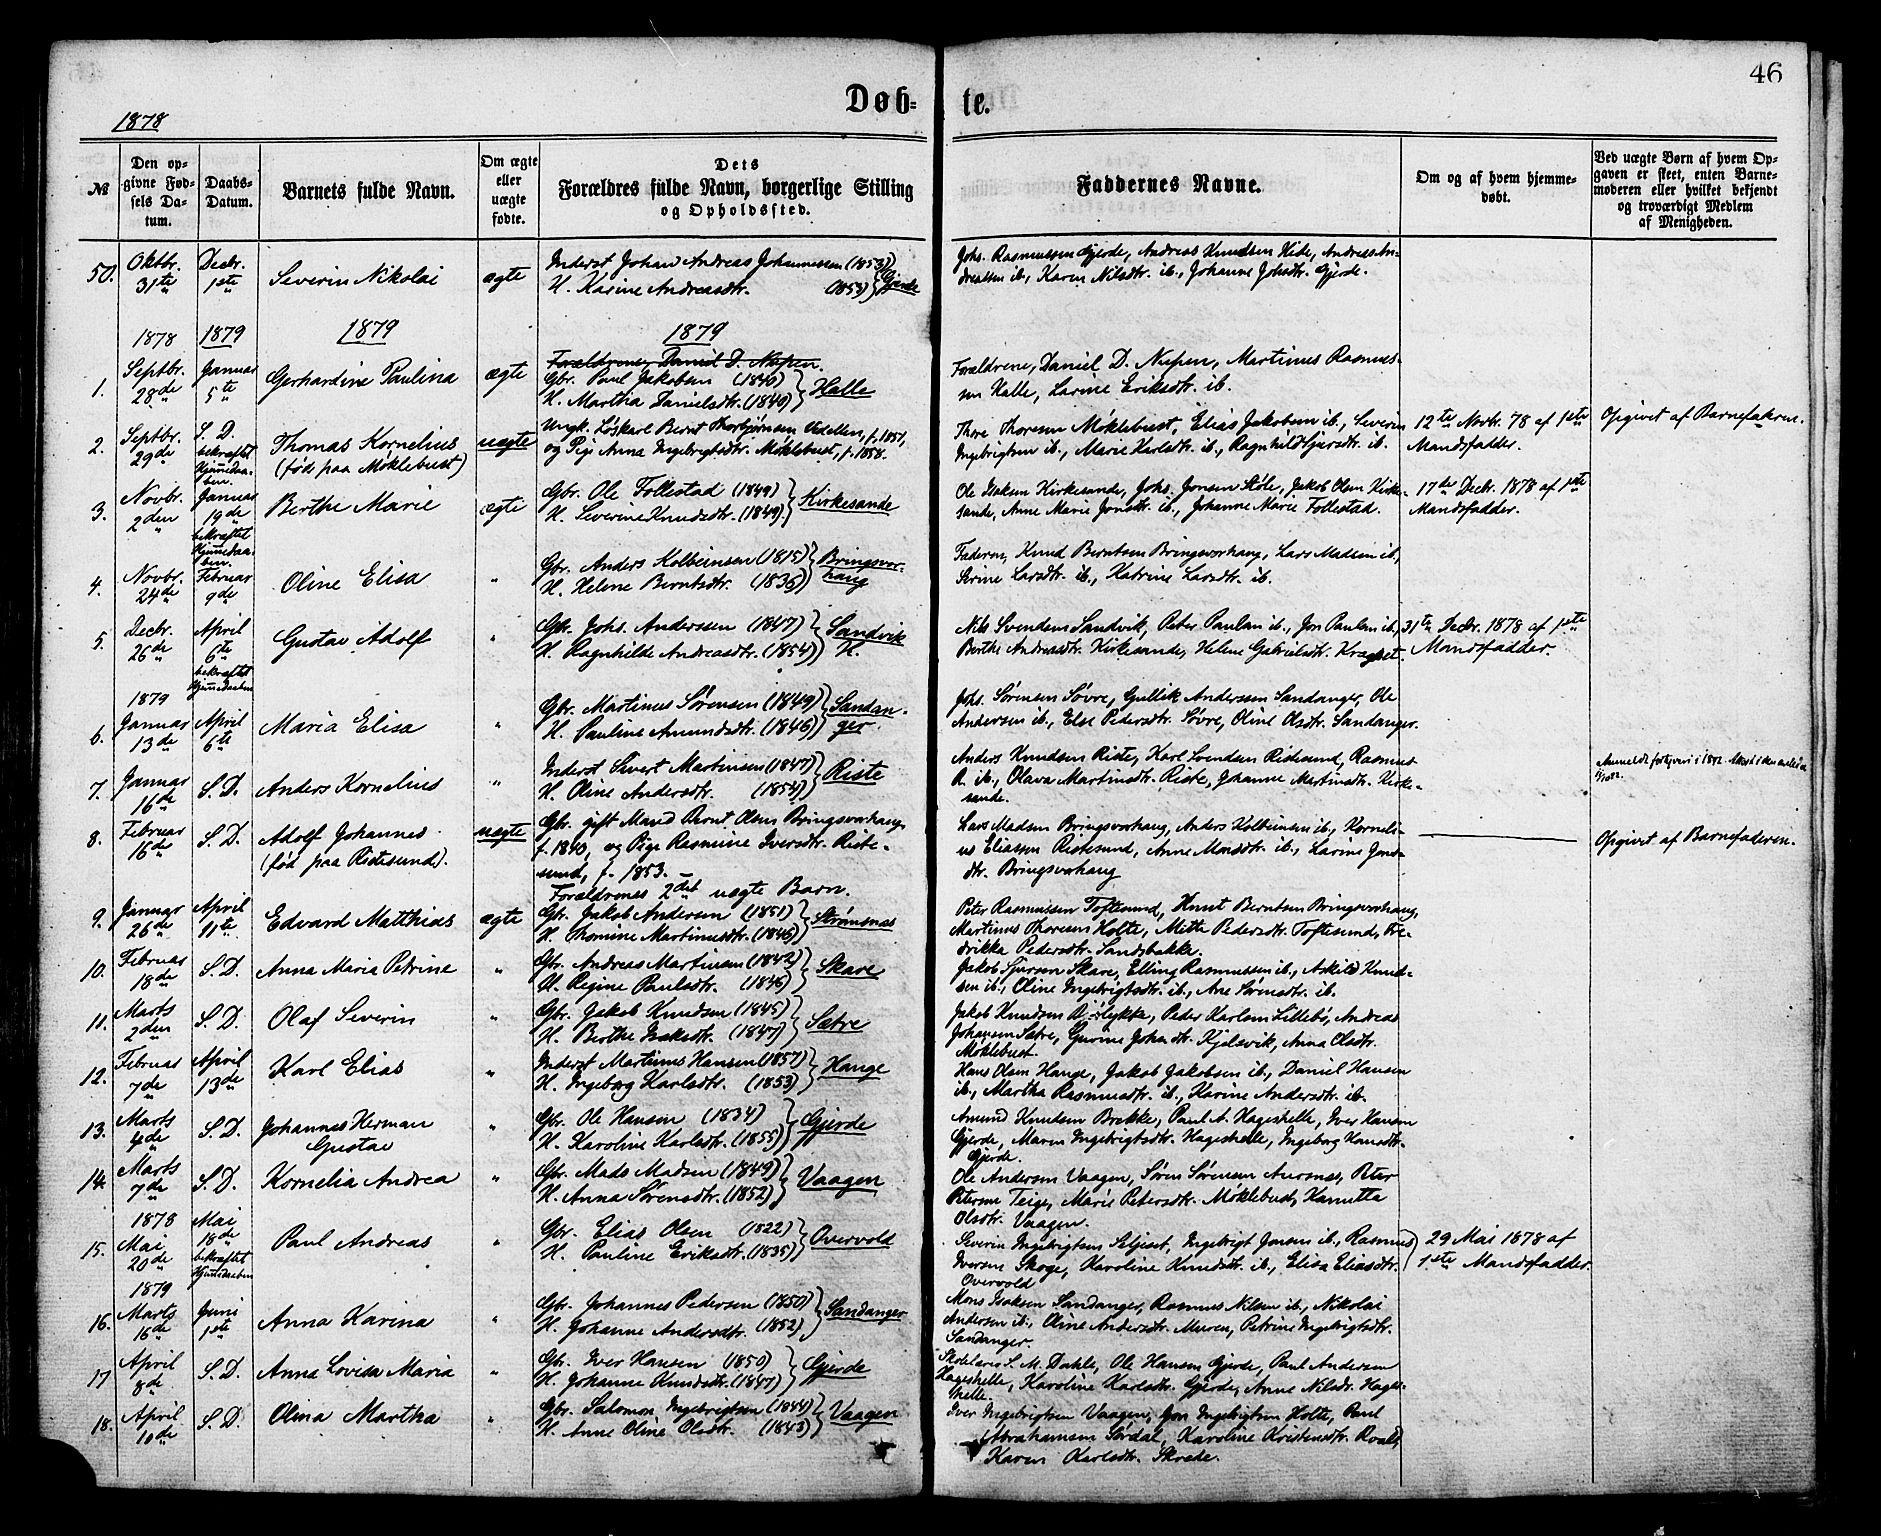 46
Døb-
te.
1878
№
Den op-
givne Fød-
sels Da-
tum.
Daabs-
Datum.
Barnets fulde Navn.
Om ægte
eller
uægte
fødte.
Dets
Forældres fulde Navn, borgerlige Stilling
og Opholdssted.
Faddernes Navne.
Om og af hvem hjemme-
døbt.
Ved uægte Børn af hvem Op-
gaven er skeet, enten Barne-
moderen eller hvilket bekjendt
og troværdigt Medlem
af Menigheden.
50.
Oktbr.
31te
Decbr.
1ste
Severin Nikolai
ægte
Inderst Johan Andreas Johannessen (1853)
H. Karine Andreasdtr. (1853)
Gjerde
Johs. Rasmussen Gjerde, Andreas Knudsen Hide, Andreas An-
dreassen ib., Karen Nilsdtr. ib., Johanne Johsdtr. Gjerde.
1878
1879
1879
1879
1.
Septbr.
28de
Januar
5te
Gerhardine Paulina
ægte
Forældrene, Daniel D. Nupen.
Gbr. Paul Jakobsen (1840)
H. Martha Danielsdtr. (1840)
Halle
Forældrene, Daniel D. Nupen, Martinus Rasmus-
sen Halle, Larine Eriksdtr. ib.
2.
Septbr.
29de
S. D.
bekræftet
Hjemmedaa-
ben.
Thomas Kornelius
(fød paa Møklebust)
uægte
Ungk. Løskarl Bernt Thorbjørnsen, f. 1851,
og Pige Anna Ingebrigtsdtr. Møklebust, f. 1858.
Thore Thoresen Møklebust, Elias Jakobsen ib., Severin
Ingebrigtsen ib., Marie Karlsdtr. ib., Ragnhild Sjursdtr. ib.
12te Novbr. 78 af 1ste
Mandsfadder.
Opgivet af Barnefaderen.
3.
Novbr.
2den
Januar
19de
bekræftet
Hjemmedaa-
ben.
Berthe Marie
ægte
Gbr. Ole Follestad (1849)
H. Severine Knudsdtr. (1849)
Kirkesande
Ole Isaksen Kirkesande, Johs. Jonsen Støle, Jakob Olsen Kirke-
sande, Anne Marie Jonsdtr. ib., Johanne Marie Follestad.
17de Decbr. 1878 af 1ste
Mandsfadder.
4.
Novbr.
24de
Februar
9de
Oline Elisa
"
Gbr. Anders Kolbeinsen (1815)
H. Helene Berntsdtr. (1836)
Bringsvor-
hang
Faderen, Knud Berntsen Bringsvorhang, Lars Madsen ib,
Serine Larsdtr. ib., Katrine Larsdtr. ib.
5.
Decbr.
26de
April
6te
bekræftet
Hjemmedaaben
Gustav Adolf
"
Gbr. Johs. Anderssen (1847)
H. Ragnhilde Andreasdtr. (1854)
Sandvik
H.
Nils Svendsen Sandvik, Peter Paulsen ib., Jon Paulsen ib.,
Berthe Andreasdtr. Kirkesande, Helene Gabrielsdtr. Kragset.
31te Decbr. 1878 af 1ste
Mandsfadder.
1879
6.
Januar
13de
April
6te
Maria Elisa
"
Gbr. Martinus Sørensen (1849)
H. Pauline Amundsdtr. (1846)
Sandan-
ger
Johs. Sørensen Søvre, Gullik Anderssen Sandanger, Ole
Andersen ib., Else Pedersdtr. Søvre, Oline Olsdtr. Sandanger.
7.
Januar
16de
S. D.
Anders Kornelius
"
Inderst Sivert Martinsen (1847)
H. Oline Andersdtr. (1854)
Riste
Anders Knudsen Riste, Karl Svendsen Ristesund, Rasmus
A. ib., Olava Martinsdtr. Riste, Johanne Martinsdtr. Kirke-
sande.
8.
Februar
16de
S. D.
Adolf Johannes
(fød paa Ristesund).
uægte
Gbr. gift Mand Bernt Olsen Bringsvorhang,
f. 1840, og Pige Rasmine Iversdtr. Riste-
sund, f. 1853.
Forældrenes 2det uægte Barn.
Lars Madsen Bringsvorhang, Anders Kolbeinsen ib., Korneli-
us Eliassen Ristesund, Anne Monsdtr. ib., Larine Jons-
dtr. Bringsvorhang
Opgivet af Barnefaderen.
9.
Januar
26de
April
11te
Edvard Matthias
ægte
Gbr. Jakob Andersen (1851)
H. Thomine Martinusdtr. (1846)
Strømsnes
Peter Rasmussen Toftesund, Knut Berntsen Bringsvorhang,
Martinus Thoresen Holte, Mette Pedersdtr. Toftesund, Fre-
drikka Pedersdtr. Sandsbakke.
10.
Februar
18de
S. D.
Anna Maria Petrine
"
Gbr. Andreas Martinsen (1842)
H. Regine Paulsdtr. (1846)
Skare
Jakob Sjursen Skare, Elling Rasmussen ib., Askild Knud-
sen ib., Oline Ingebrigtsdtr. ib., Ane Sørensdtr. ib.
11.
Marts
2den
S. D.
Olaf Severin
"
Gbr. Jakob Knudsen (1845)
H. Berthe Isaksdtr. (1847)
Sætre
Jakob Knudsen Rørlykke, Peder Karlsen Lillebø, Andreas
Johansen Sætre, Gurine Johsdtr. Kjelsvik, Anna Olsdtr.
Møklebust.
12.
Februar
7de
April
13de
Karl Elias
"
Inderst Martinus Hansen (1857)
H. Ingeborg Karlsdtr. (1853)
Hauge
Hans Olsen Hauge, Jakob Jakobsen ib., Daniel Hansen
ib., Martha Rasmusdtr. ib., Karine Andersdtr. ib.
13.
Marts
S. D.
Johannes Herman
Gustav
"
Gbr. Ole Hansen (1834)
H. Karoline Karlsdtr. (1855)
Gjerde
Amund Knudsen Brekke, Paul A. Hageshelle, Iver Hansen
Gjerde, Maren Ingebrigtsdtr. Hageshelle, Ingeborg Hansdtr.
Gjerde.
14.
Marts
7de
S. D.
Kornelia Andrea
"
Gbr. Mads Madsen (1849)
H. Anna Sørensdtr. (1852)
Vaagen
Ole Andersen Vaagen, Søren Sørensen Aursnes, Peter
Petersen Teige, Marie Petersdtr. Møklebust, Hanutta
Olsdtr. Vaagen.
1878
15.
Mai
20de
Mai
18de
bekræftet
Hjemmedaaben
Paul Andreas
"
Gbr. Elias Olsen (1822)
H. Pauline Eriksdtr. (1835)
Overvold
Severin Ingebrigtsen Seljeset, Ingebrigt Jonsen ib., Rasmus
Iversen Skoge, Karoline Knudsdtr. ib., Elisa Eliasdtr.
Overvold
29 Mai 1878 af
1ste Mandsfadder.
1879
16.
Marts
16de
Juni
1ste
Anna Karina
"
Gbr. Johannes Pedersen (1850)
H. Johanne Andersdtr. (1852)
Sandanger
Mons Isaksen Sandanger, Rasmus Nilsen ib., Nikolai
Andersen ib., Oline Andersdtr. Muren, Petrine Ingebrigtsdtr.
Sandanger.
17
April
8de
S. D.
Anna Lovisa Maria
"
Gbr. Iver Hansen (1850)
H. Johanne Knudsdtr. (1847)
Gjerde
Skolelærer S. M. Dahle, Ole Hansen Gjerde, Paul Andersen
Hageshelle, Karoline Karlsdtr. Gjerde, Anne Nilsdtr. Hages-
helle.
18.
April
10de
S. D.
Olina Martha
"
Gbr. Salomon Ingebrigtsen (1844)
H. Anne Oline Olsdtr. (1843)
Vaagen
Iver Ingebrigtsen Vaagen, Jon Ingebrigtsen Holte, Paul
Abrahamsen Sørdal, Karoline Kristensdtr. Kvals,
Karen Karlsdtr. Skrede.